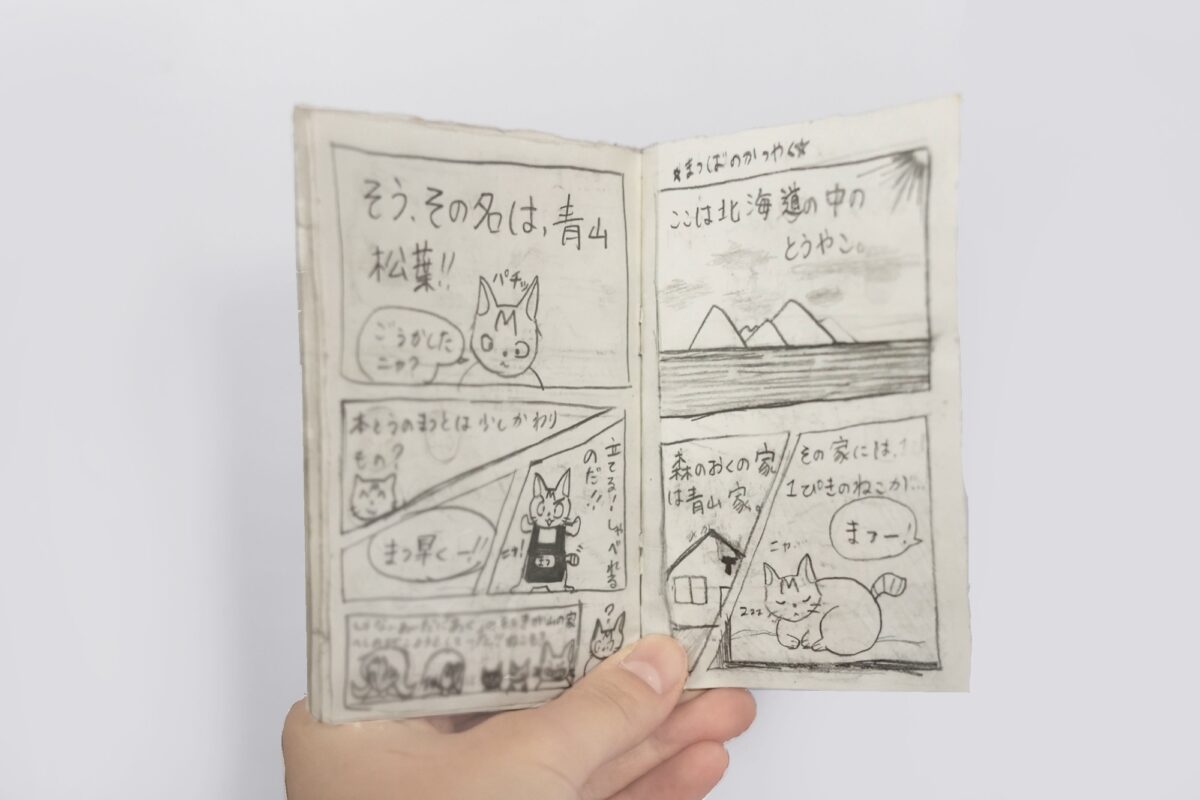 ☆まつばのかつやく☆
ここは北海道の中の
とうやこ。
森のおくの家
は青山家。
その家には、
1ぴきのねこが…
まつー!
ニャ
zzz
そう、その名は、青山
松葉!!
パチッ
どうかした
ニャ?
本とうのまつとは少しかわり
もの?
まつ早くー!!
立てる!しゃべれる
のだ!!
ニャ!
まつ
?